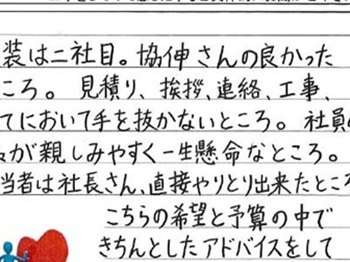 装は二社目。協伸さんの良かった
ころ。見積り、挨拶、連絡、工事、
てにおいて手を抜かないところ。社員の
が親しみやすく一生懸命なところ。
当者は社長さん、直接やりとり出来たところ
こちらの希望と予算の中で
きちんとしたアドバイスをして